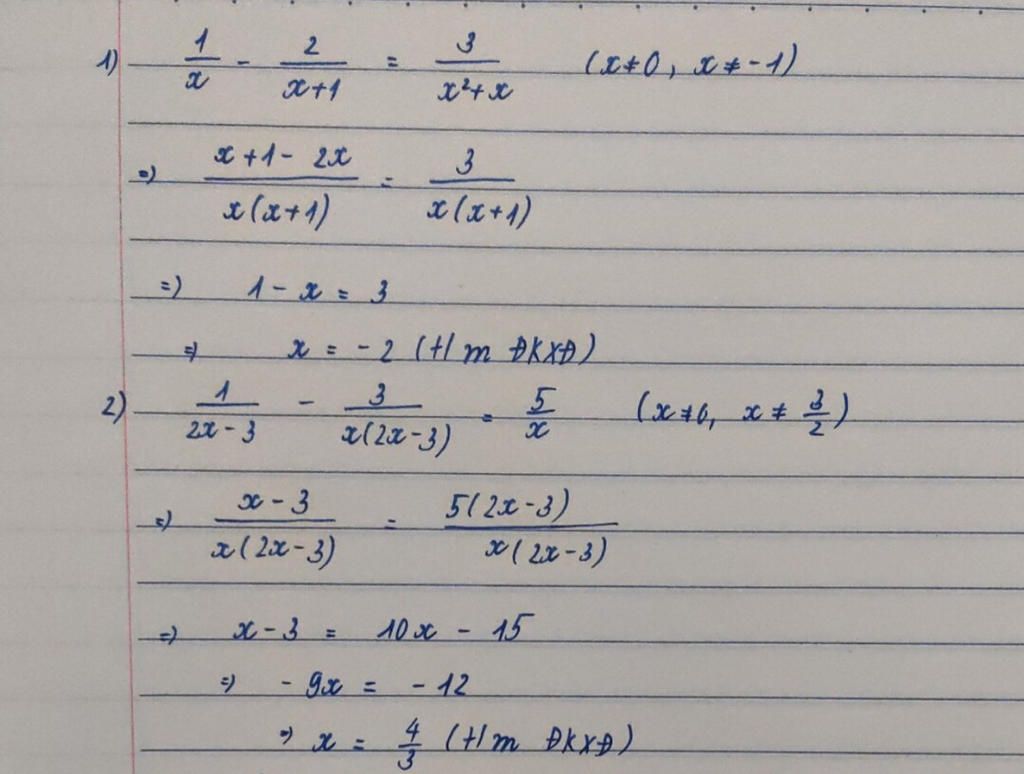 1) 1/x - 2/(x+1) = 3/(x²+x) (x≠0, x≠-1)
=) (x+1-2x)/(x(x+1)) = 3/(x(x+1))
=) 1-x = 3
=) x = -2 (t/m ĐKXĐ)
2) 1/(2x-3) - 3/(x(2x-3)) = 5/x (x≠0, x≠3/2)
=) (x-3)/(x(2x-3)) = 5(2x-3)/(x(2x-3))
=) x-3 = 10x - 15
=) -9x = -12
=) x = 4/3 (t/m ĐKXĐ)